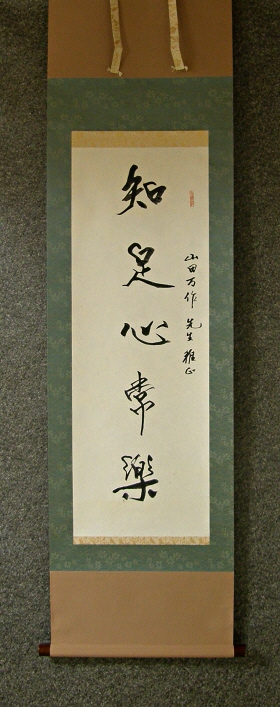 山田万作 先生 雅正
知足心常樂